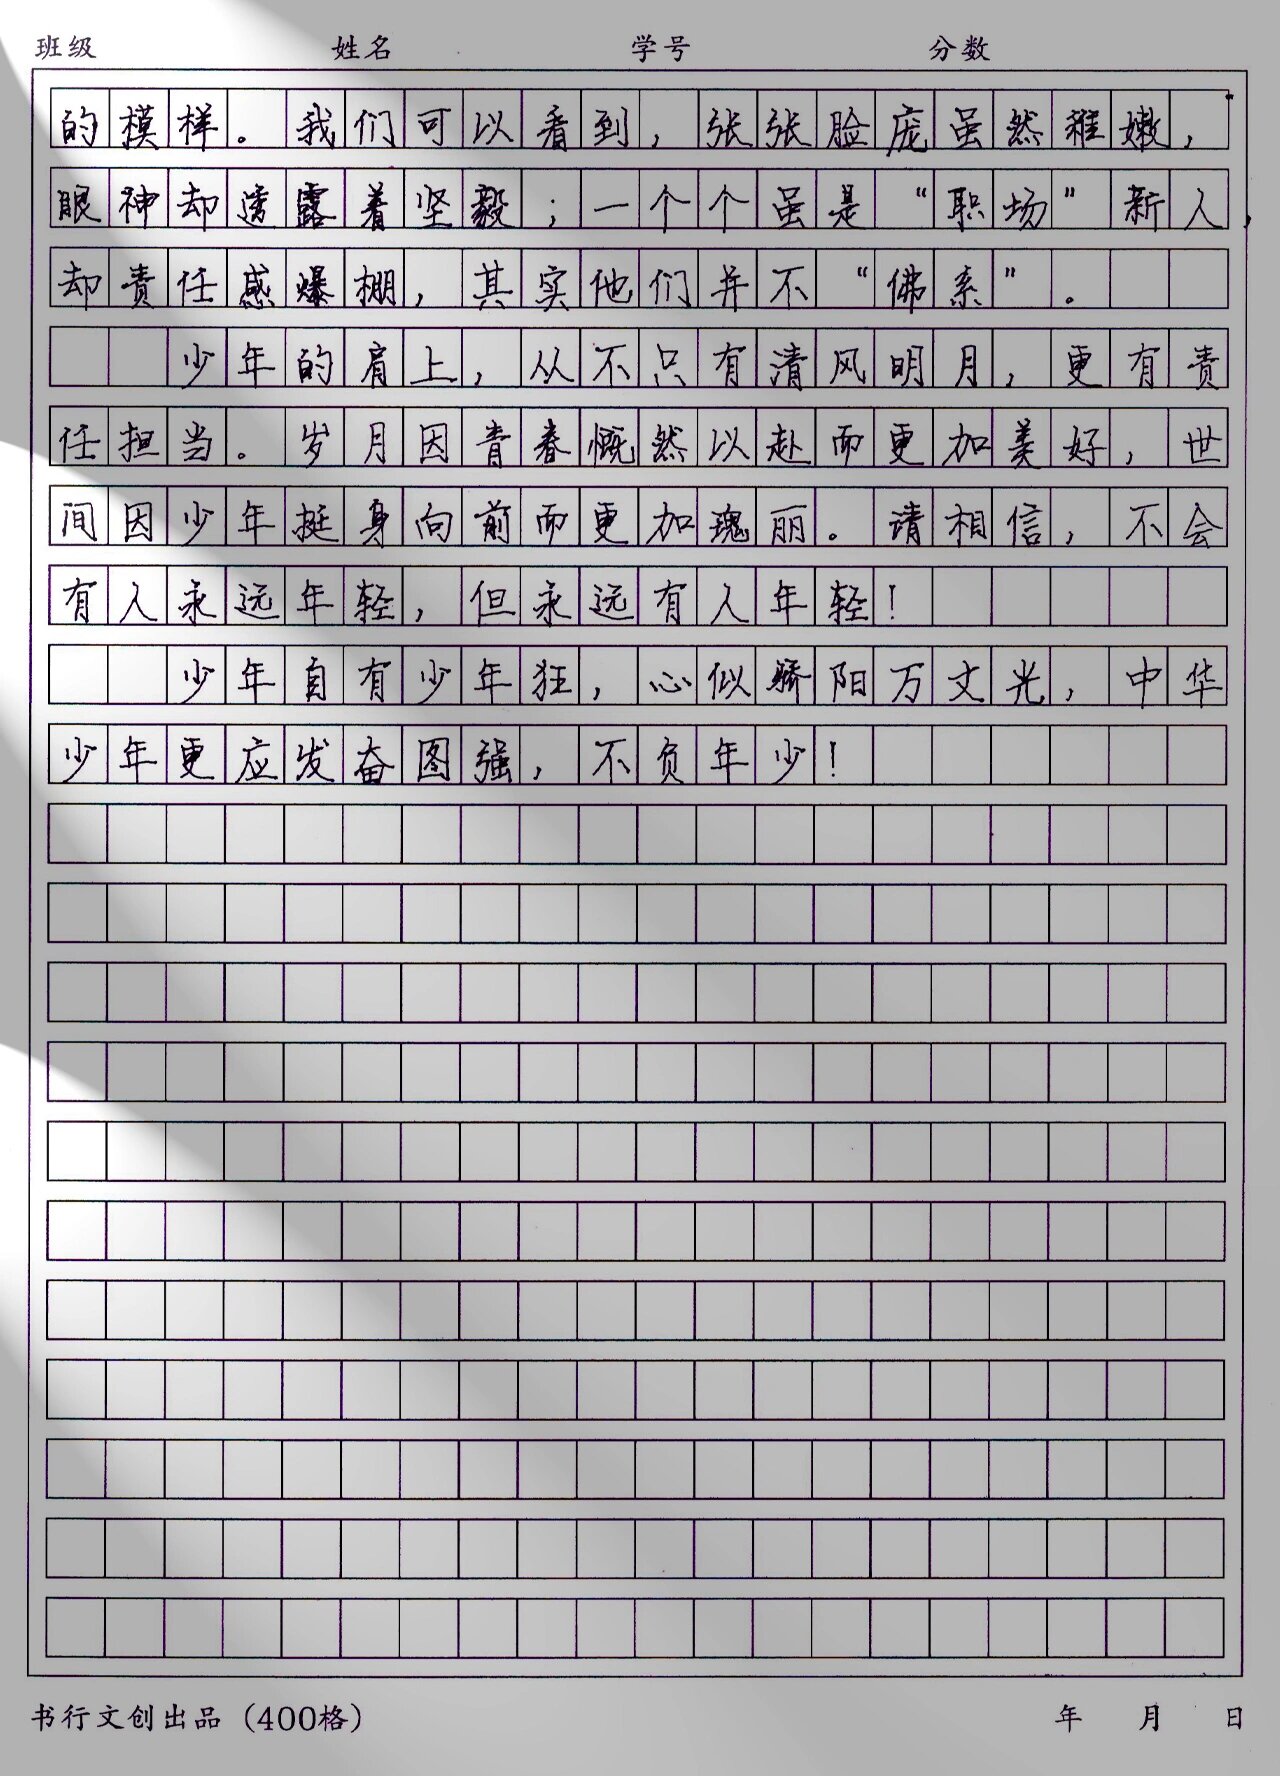 班级 姓名 学号 分数
的模样。我们可以看到，张张脸庞虽然稚嫩，
眼神却透露着坚毅；一个个虽是“职场”新人，
却责任感爆棚，其实他们并不“佛系”。
少年的肩上，从不只有清风明月，更有责
任担当。岁月因青春慨然以赴而更加美好，世
间因少年挺身向前而更加瑰丽。请相信，不会
有人永远年轻，但永远有人年轻！
少年自有少年狂，心似骄阳万丈光，中华
少年更应发奋图强，不负年少！
书行文创出品（400格） 年 月 日